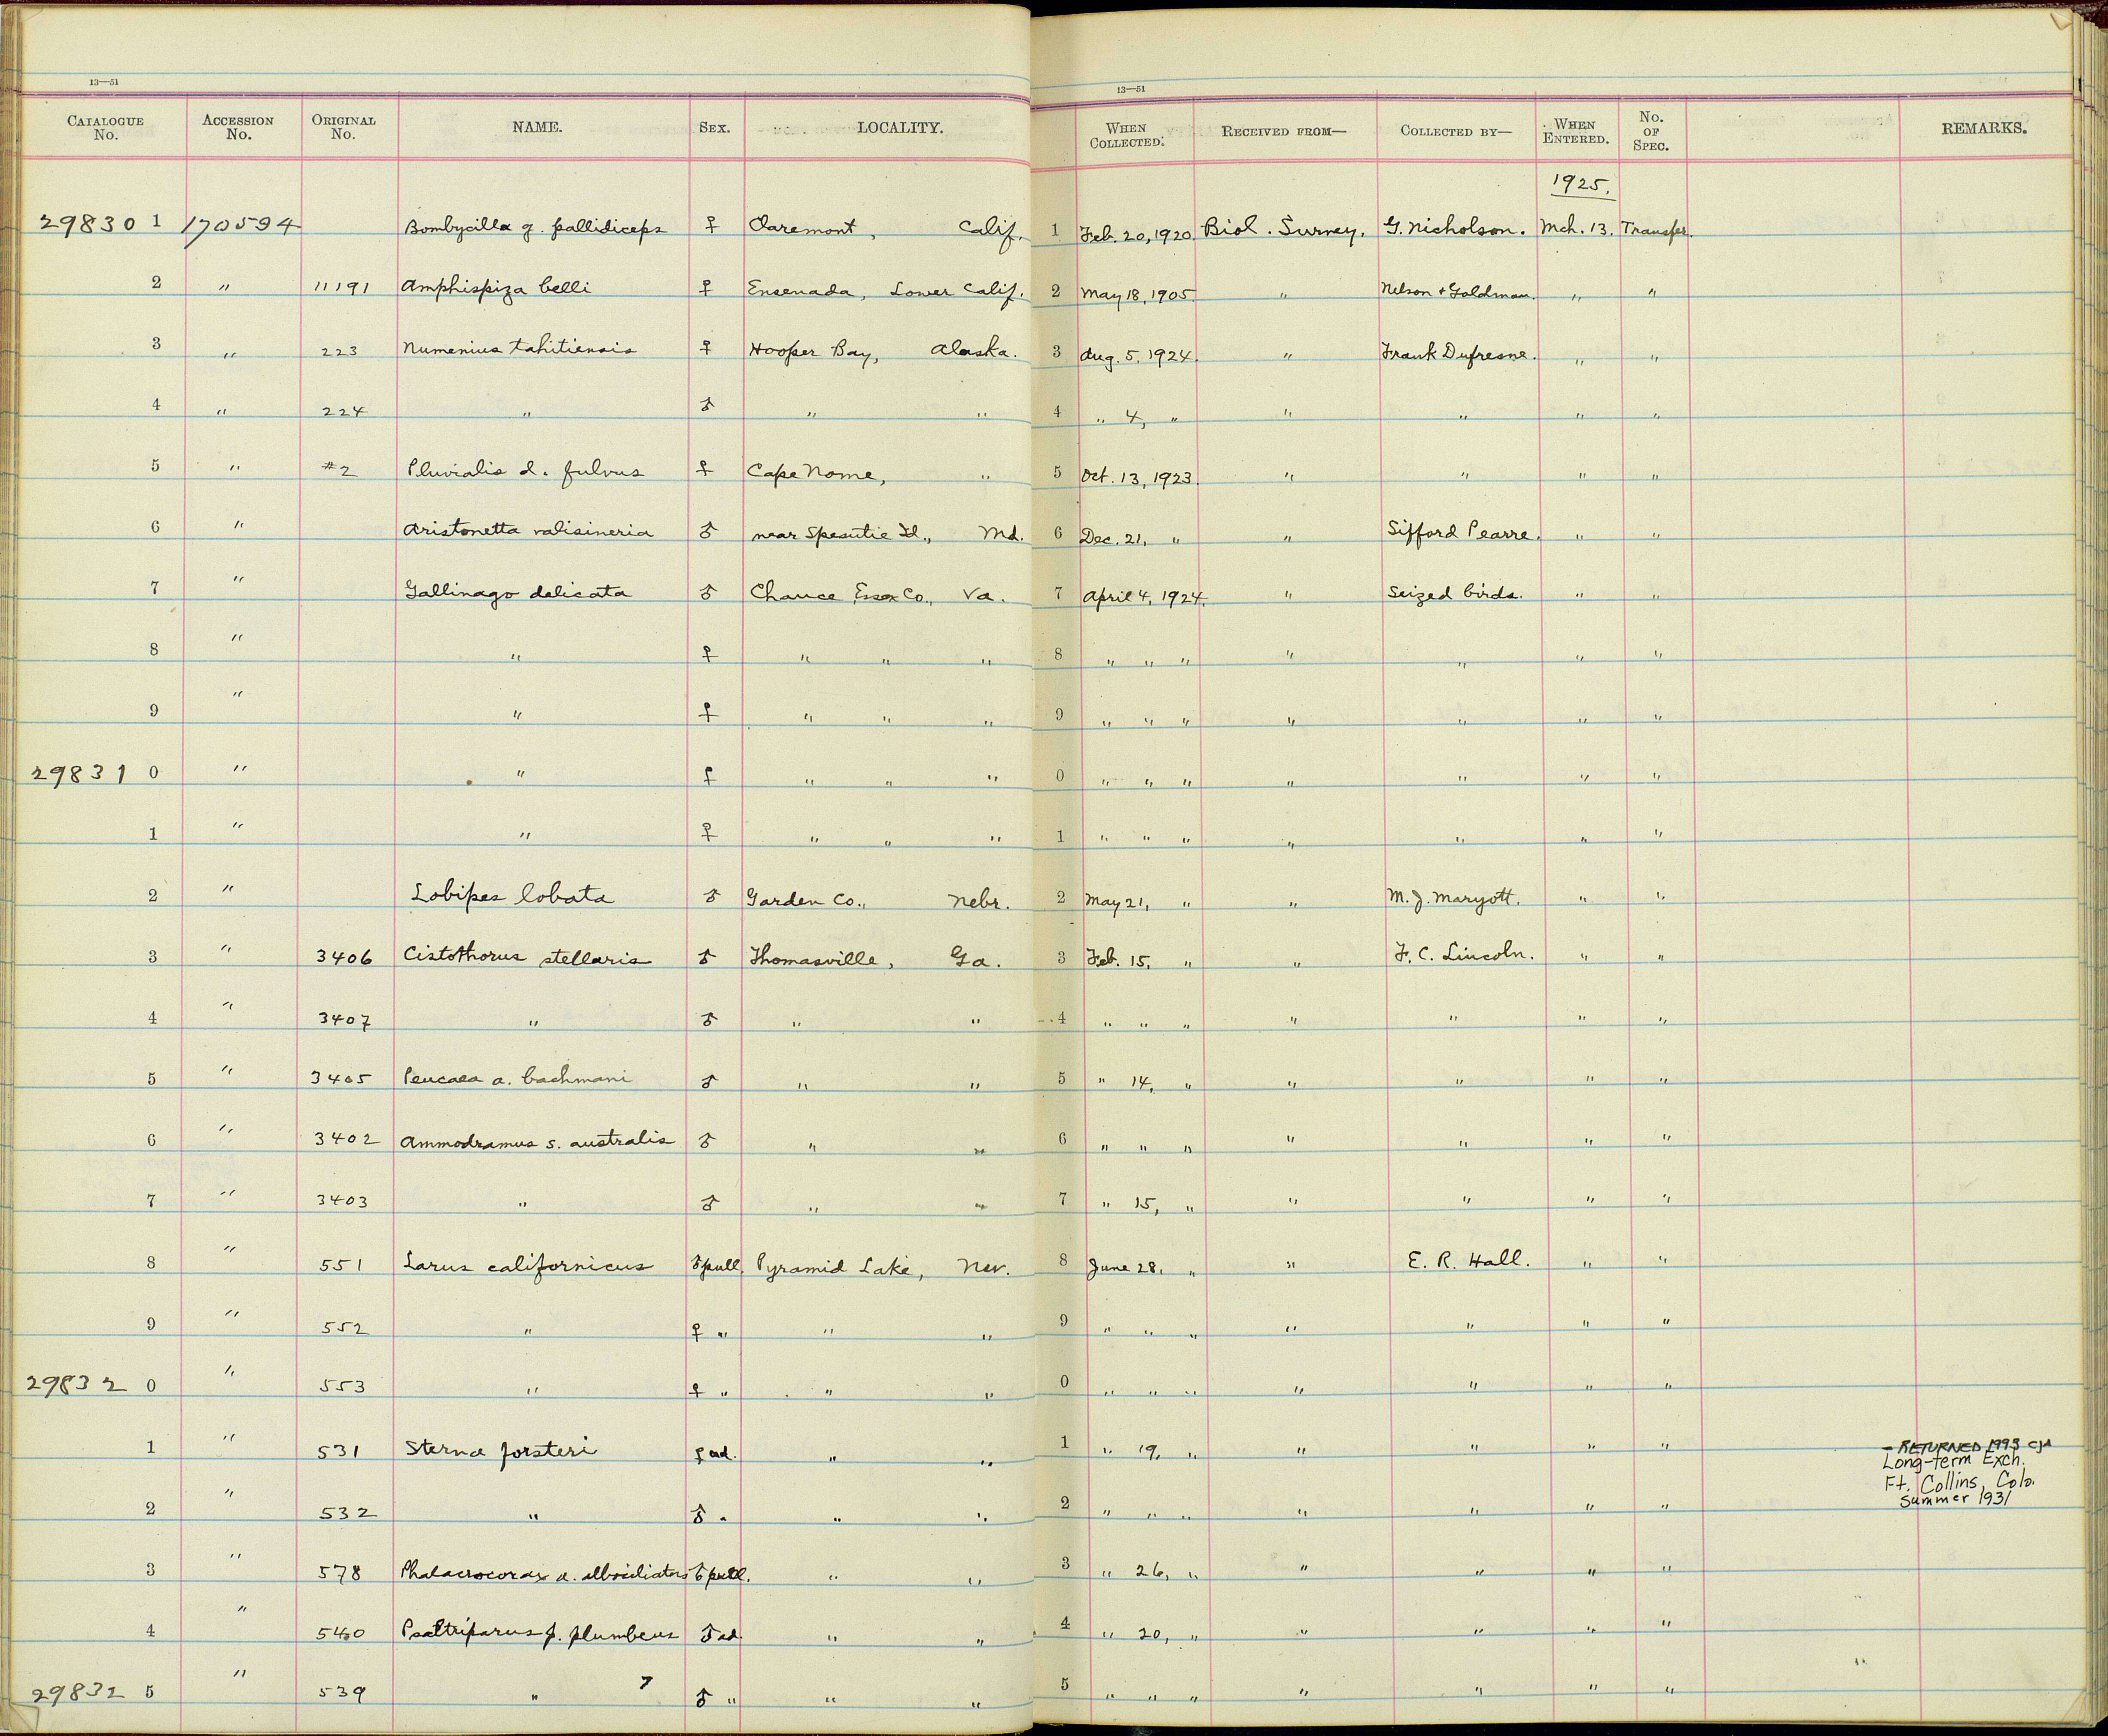 13—51 13—51
CATALOGUE No. ACCESSION No. ORIGINAL No. NAME. SEX. LOCALITY. WHEN COLLECTED. RECEIVED FROM— COLLECTED BY— WHEN ENTERED. No. OF SPEC. REMARKS.
1925.
29830 1 170594 Bombycilla g. pallidiceps ♀ Claremont, Calif. 1 Feb. 20, 1920. Biol. Survey. G. Nicholson. Mch. 13. Transfer.
2 " 11191 Amphispiza belli ♀ Ensenada, Lower Calif. 2 May 18, 1905. " Nelson + Goldman. " "
3 " 223 Numenius tahitiensis ♀ Hooper Bay, Alaska. 3 Aug. 5, 1924. " Frank Dufresne. " "
4 " 224 " ♂ " " 4 " 4, " " " " "
5 " #2 Pluvialis d. fulvus ♀ Cape Nome, " 5 Oct. 13, 1923. " " " "
6 " Aristonetta valisineria ♂ near Spesutie Id., Md. 6 Dec. 21, " " Sifford Pearre. " "
7 " Gallinago delicata ♂ Chance Essex Co., Va. 7 April 4, 1924. " Seized birds. " "
8 " " ♀ " " " 8 " " " " " " "
9 " " ♀ " " " 9 " " " " " " "
29831 0 " " ♀ " " " 0 " " " " " " "
1 " " ♀ " " " 1 " " " " " " "
2 " Lobipes lobata ♂ Garden Co., Nebr. 2 May 21, " " M. J. Maryott. " "
3 " 3406 Cistothorus stellaris ♂ Thomasville, Ga. 3 Feb. 15, " " F. C. Lincoln. " "
4 " 3407 " ♂ " " 4 " " " " " " "
5 " 3405 Peucaea a. bachmani ♂ " " 5 " 14, " " " " "
6 " 3402 Ammodramus s. australis ♂ " " 6 " " " " " " "
7 " 3403 " ♂ " " 7 " 15, " " " " "
8 " 551 Larus californicus ♂ pull. Pyramid Lake, Nev. 8 June 28, " " E. R. Hall. " "
9 " 552 " ♀ " " " 9 " " " " " " "
29832 0 " 553 " ♀ " " " 0 " " " " " " "
1 " 531 Sterna forsteri ♀ ad. " " 1 " 19, " " " " " - RETURNED 1993
Long-term Exch.
Ft. Collins, Colo.
Summer 1931
2 " 532 " ♂ " " " 2 " " " " " " "
3 " 578 Phalacrocorax a. albociliatus ♂ pull. " " 3 " 26, " " " " "
4 " 540 Psaltriparus p. plumbeus ♂ ad. " " 4 " 20, " " " " "
29832 5 " 539 " ♂ " " " 5 " " " " " " "